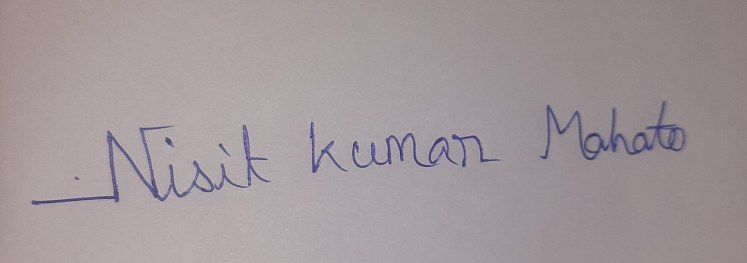 Nisit kumar Mahato